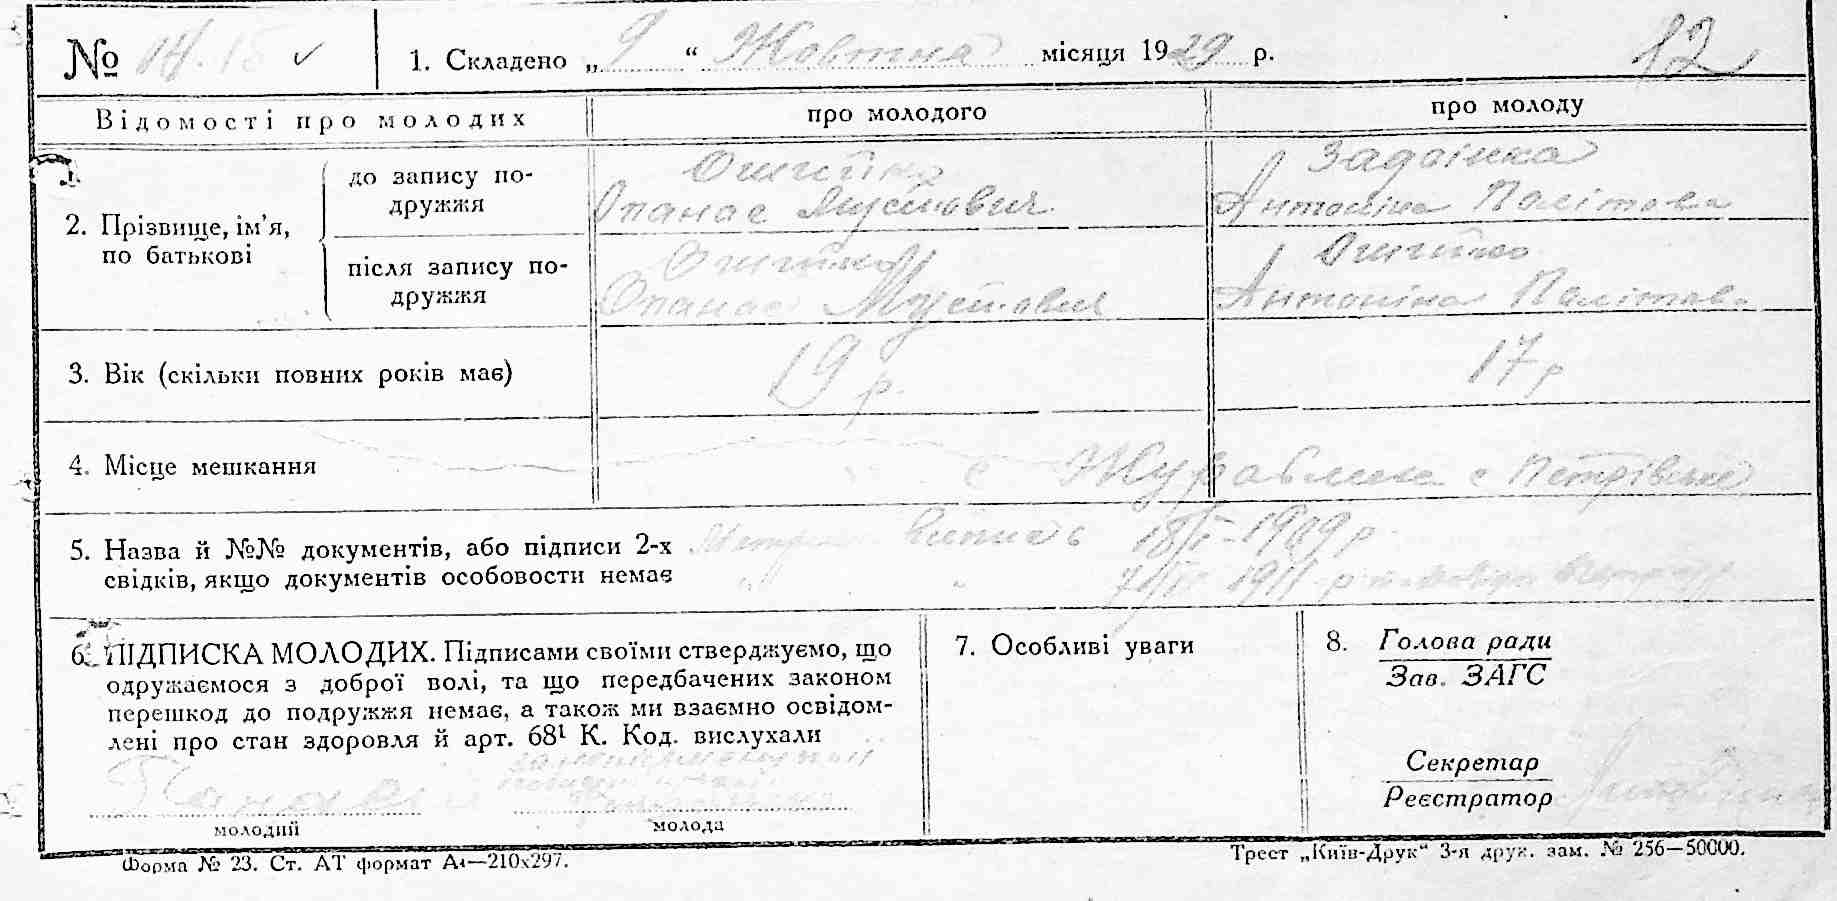 № 14.15 ✓ 1. Складено „ 9 “ Жовтня місяця 1929 р. 12
Відомості про молодих про молодого про молоду
2. Прізвище, ім’я, по батькові
до запису по-
дружжя
Задоінка
Опанас Мусійович Антоніна Палітова
після запису по-
дружжя
Опанас Мусійович Антоніна Палітова
3. Вік (скільки повних років має) 19 р. 17 р
4. Місце мешкання с Журавлик с Петрівське
5. Назва й №№ документів, або підписи 2-х випись 18/I-1909 р
свідків, якщо документів особовости немає „ „ 1911 р
6. ПІДПИСКА МОЛОДИХ. Підписами своїми стверджуємо, що
одружаємося з доброї волі, та що передбачених законом
перешкод до подружжя немає, а також ми взаємно освідом-
лені про стан здоровля й арт. 68¹ К. Код. вислухали
молодий молода
7. Особливі уваги
8. Голова ради
Зав. ЗАГС
Секретар
Реєстратор
Форма № 23. Ст. АТ формат А4—210х297. Трест „Київ-Друк“ 3-я друк. зам. № 256—50000.